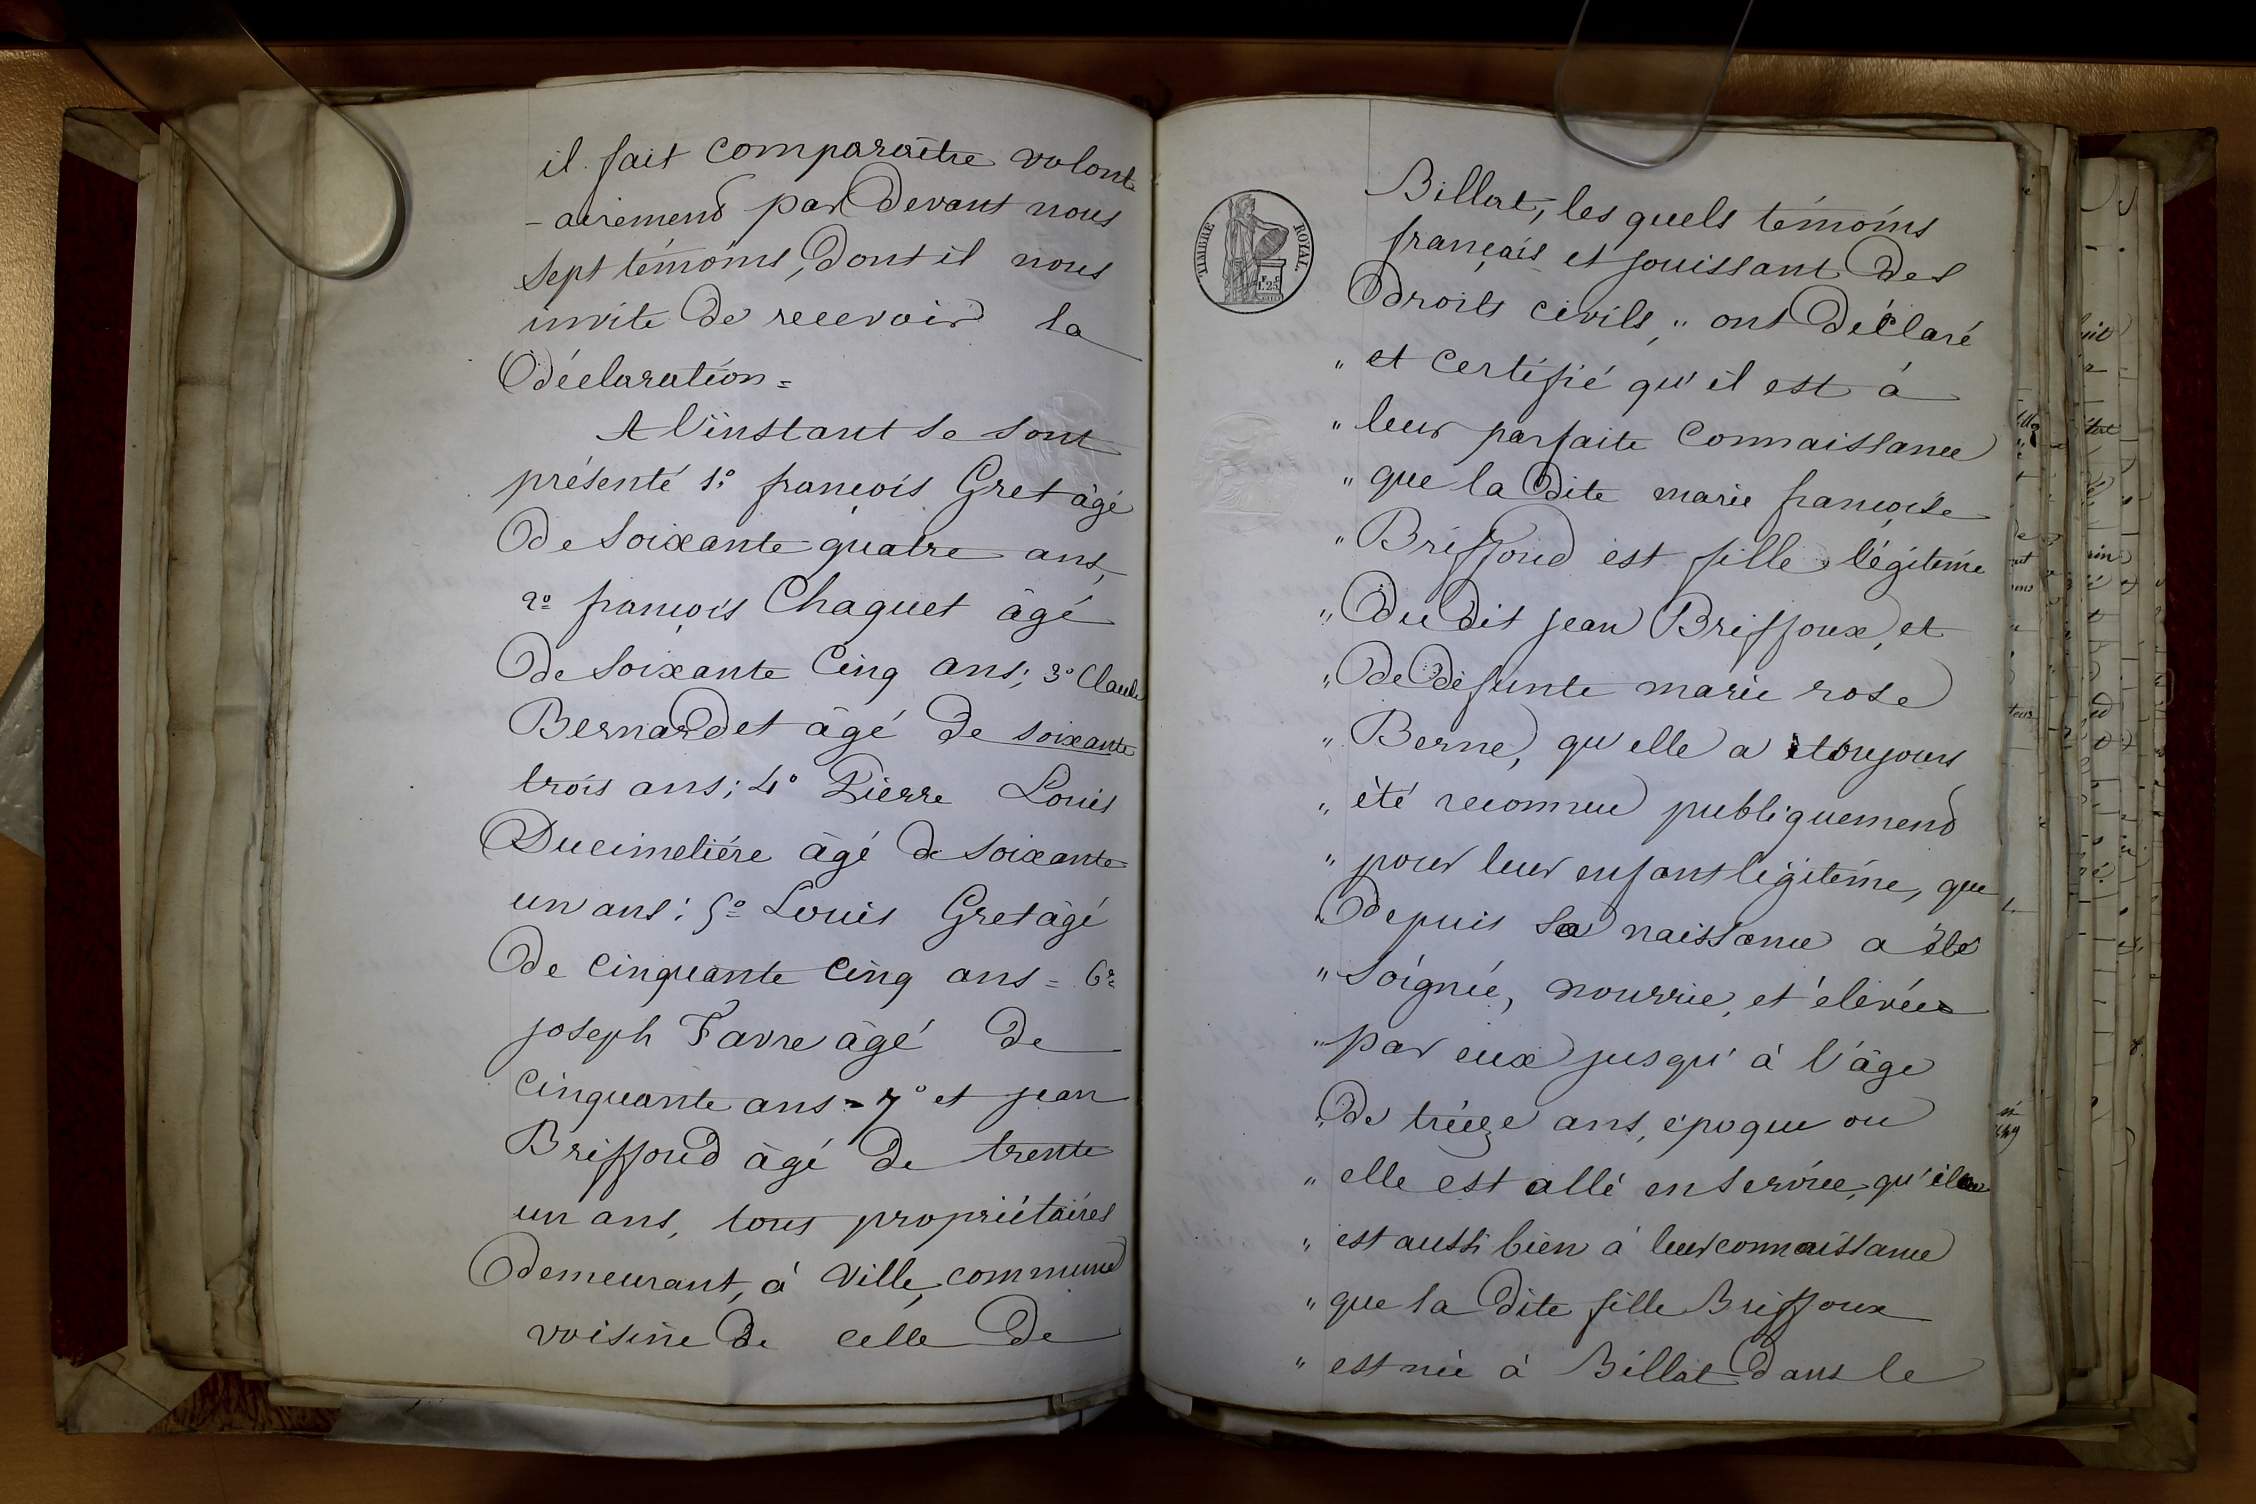 il fait comparaître volont
- airement par Devant nous
sept témoins, dont il nous
invite De recevoir la
Déclaration =
A l'instant se sont
présenté 1º françois Gret âgé
De Soixante quatre ans,
2º françois Chaguet âgé
De Soixante Cinq ans; 3º Claude
Bernardet âgé De soixante
trois ans; 4º Pierre Louis
Ducimetiére âgé de soixante
un ans; 5º Louis Gret âgé
De Cinquante Cinq ans = 6º
joseph Favre âgé De
Cinquante ans = 7º et jean
Briffoud âgé De trente
un ans, tous propriétaires
Demeurant, à Ville, commune
voisine De celle De
TIMBRE ROYAL
Billat, les quels témoins
français et jouissant Des
Droits civils, " ont Déclaré
" et Certifié qu'il est à
" leur parfaite Connaissance
" que la Dite marie françoise
" Briffoud est fille légitime
" Du Dit jean Briffoux, et
" De Défunte marie rose
" Berne, qu'elle a toujours
" été reconnue publiquement
" pour leur enfant légitime, que
" Depuis sa naissance a été
" Soignée, nourrie, et élevée
" par eux jusqu'à l'âge
" De treize ans, époque ou
" elle est allé en Service, qu'il
" est aussi bien à leur connaissance
" que la Dite fille Briffoux
" est née à Billat Dans le